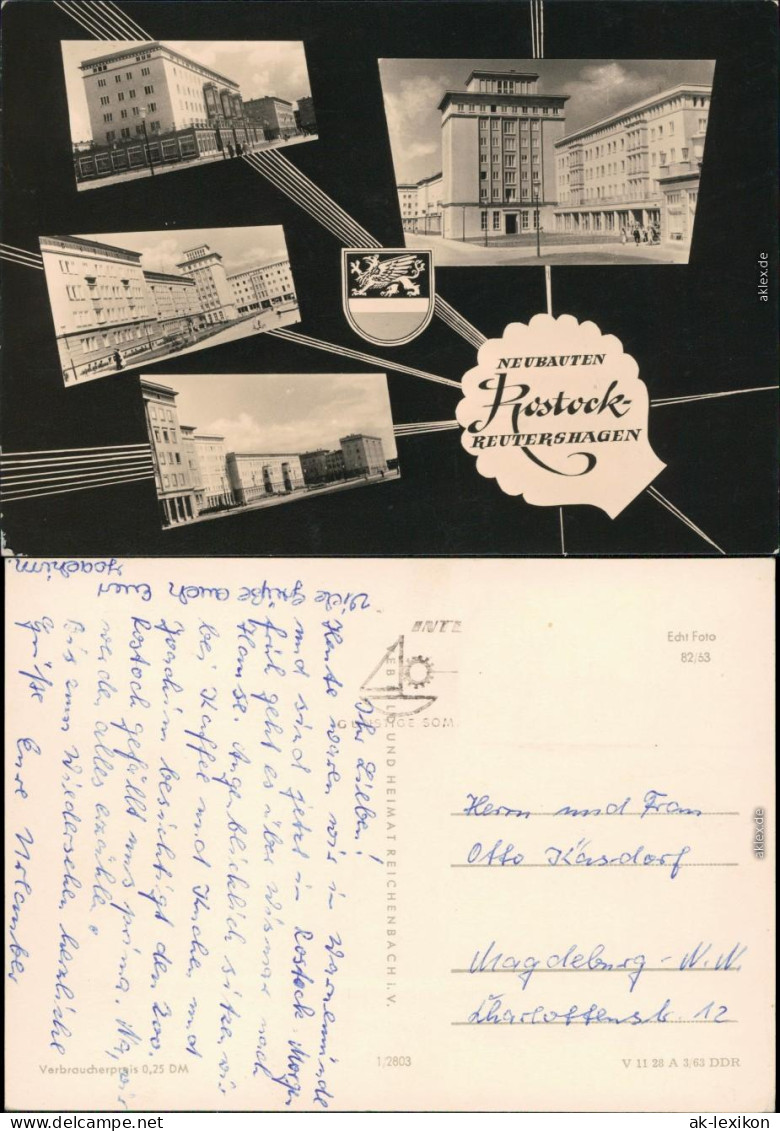 NEUBAUTEN
Rostock-
REUTERSHAGEN
aklex.de
Ihr Lieben!
Heute waren wir in Warnemünde
und sind jetzt in Rostock. Morgen
früh geht es über Wismar nach
Hause. Augenblicklich sitzen wir
bei Kaffee und Kuchen und
Joachim besichtigt den Zoo.
Rostock gefällt uns prima. Na, wir
werden alles erzählen.
Bis zum Wiedersehen herzliche
Grüße Eure
Viele Grüße auch Euer
Joachim.
INTE
GÜNSTIGE SOM
BILD UND HEIMAT REICHENBACH i. V.
Echt Foto
82/63
Herrn und Frau
Otto Käsdorf
Magdeburg - N.W.
Charlottenstr. 12
aklex.de
Verbraucherpreis 0,25 DM
1/2803
V 11 28 A 3/63 DDR
aklex.de
ak-lexikon
ak-lexikon.de